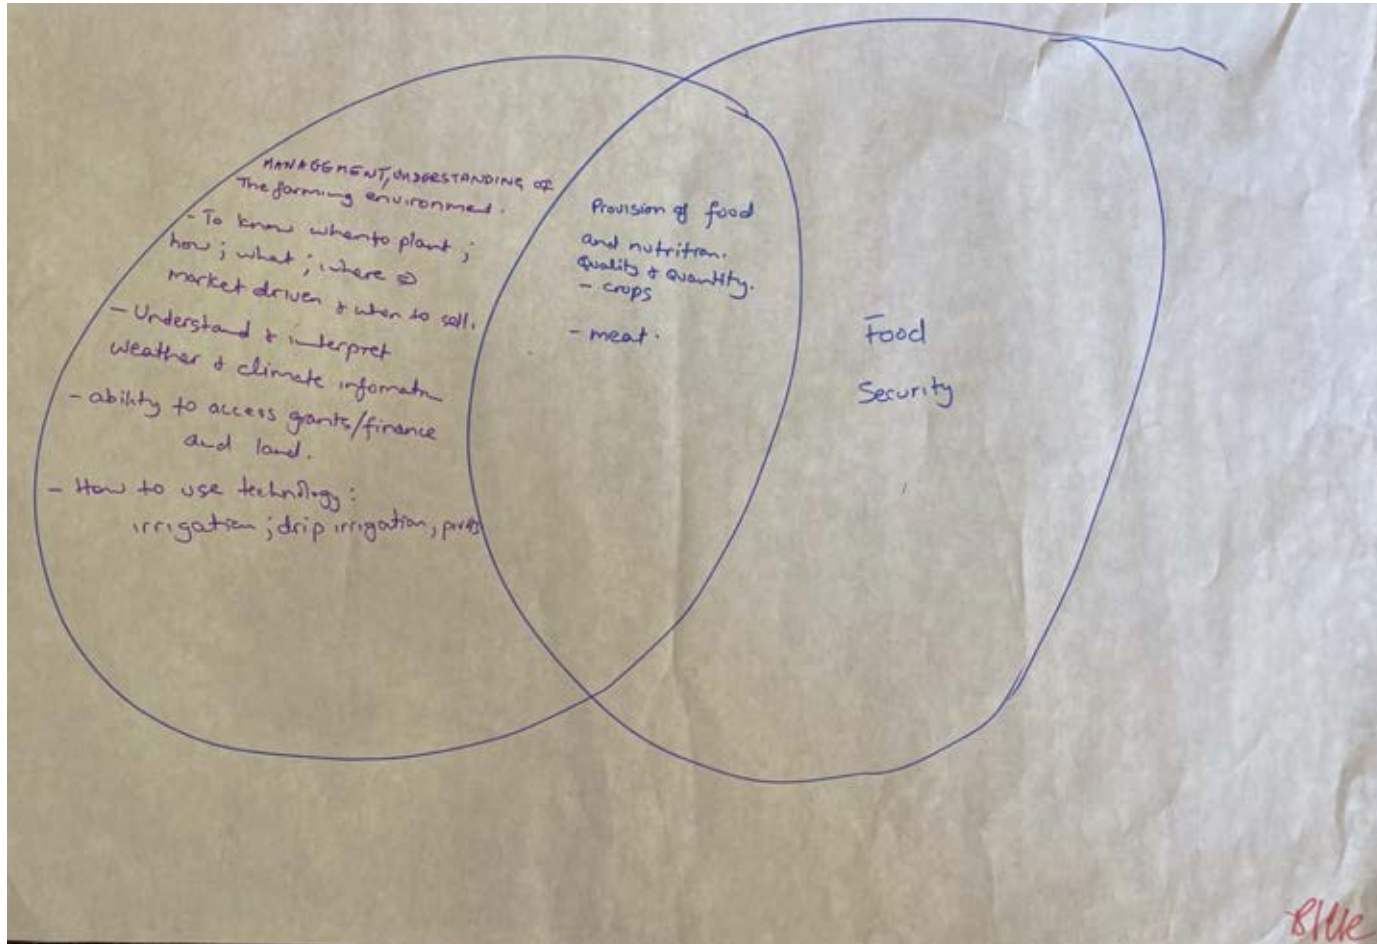 MANAGEMENT, UNDERSTANDING OF
The farming environment.
- To know when to plant ;
how ; what ; where
market driven & when to sell.
- Understand & interpret
weather & climate informatn
- ability to access grants/finance
and land.
- How to use technology :
irrigation ; drip irrigation,
Provision of food
and nutrition.
Quality & Quantity.
- crops
- meat.
Food
Security
Blue